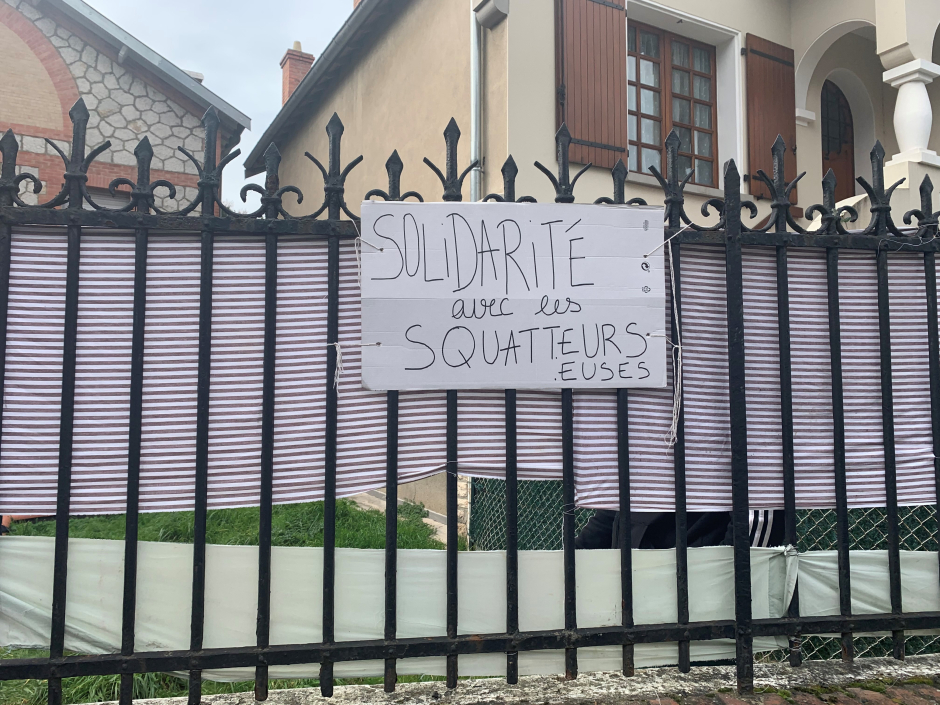 SOLiDARiTÉ
avec les
SQUATT.EURS
.EUSES